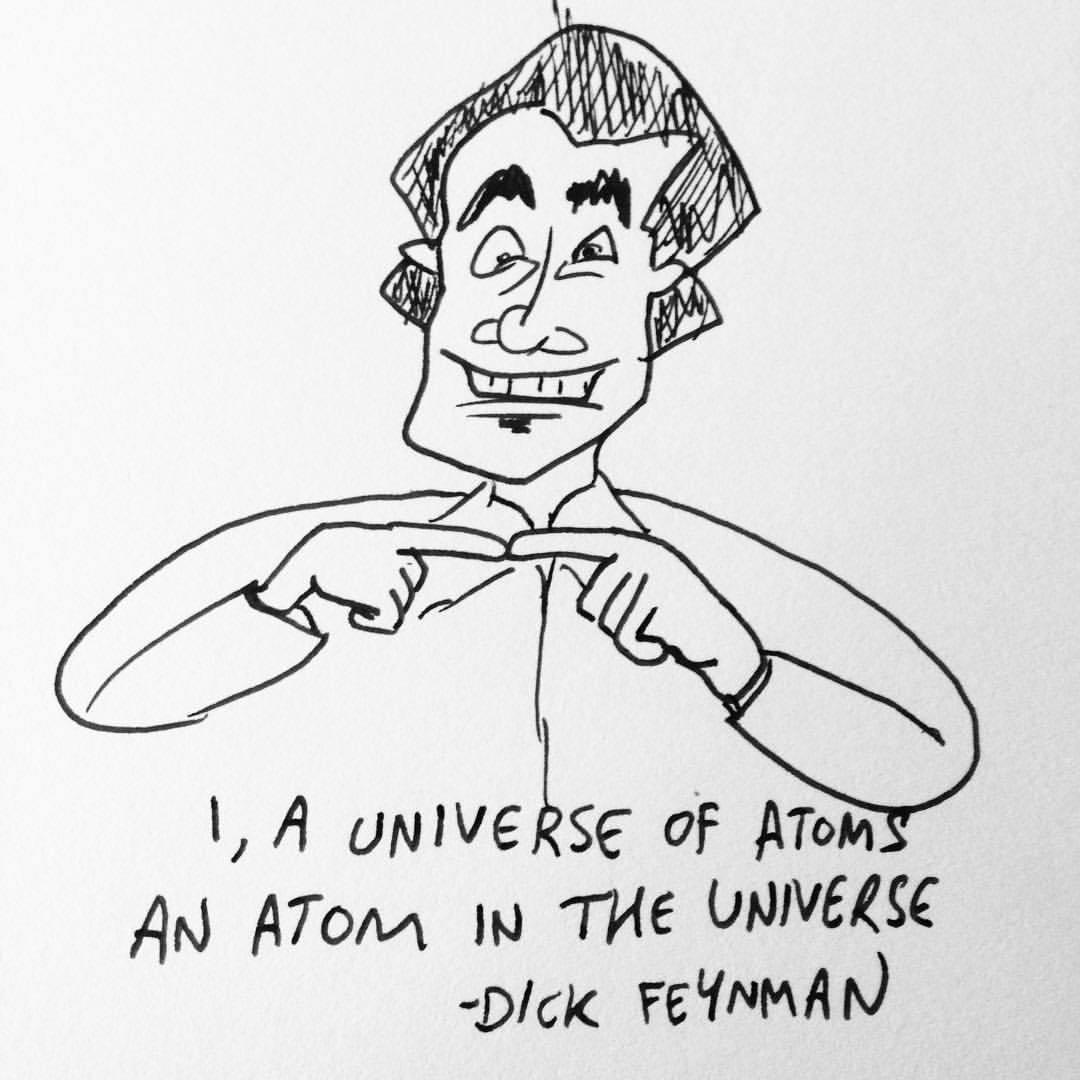 I, A UNIVERSE OF ATOMS
AN ATOM IN THE UNIVERSE
-DICK FEYNMAN